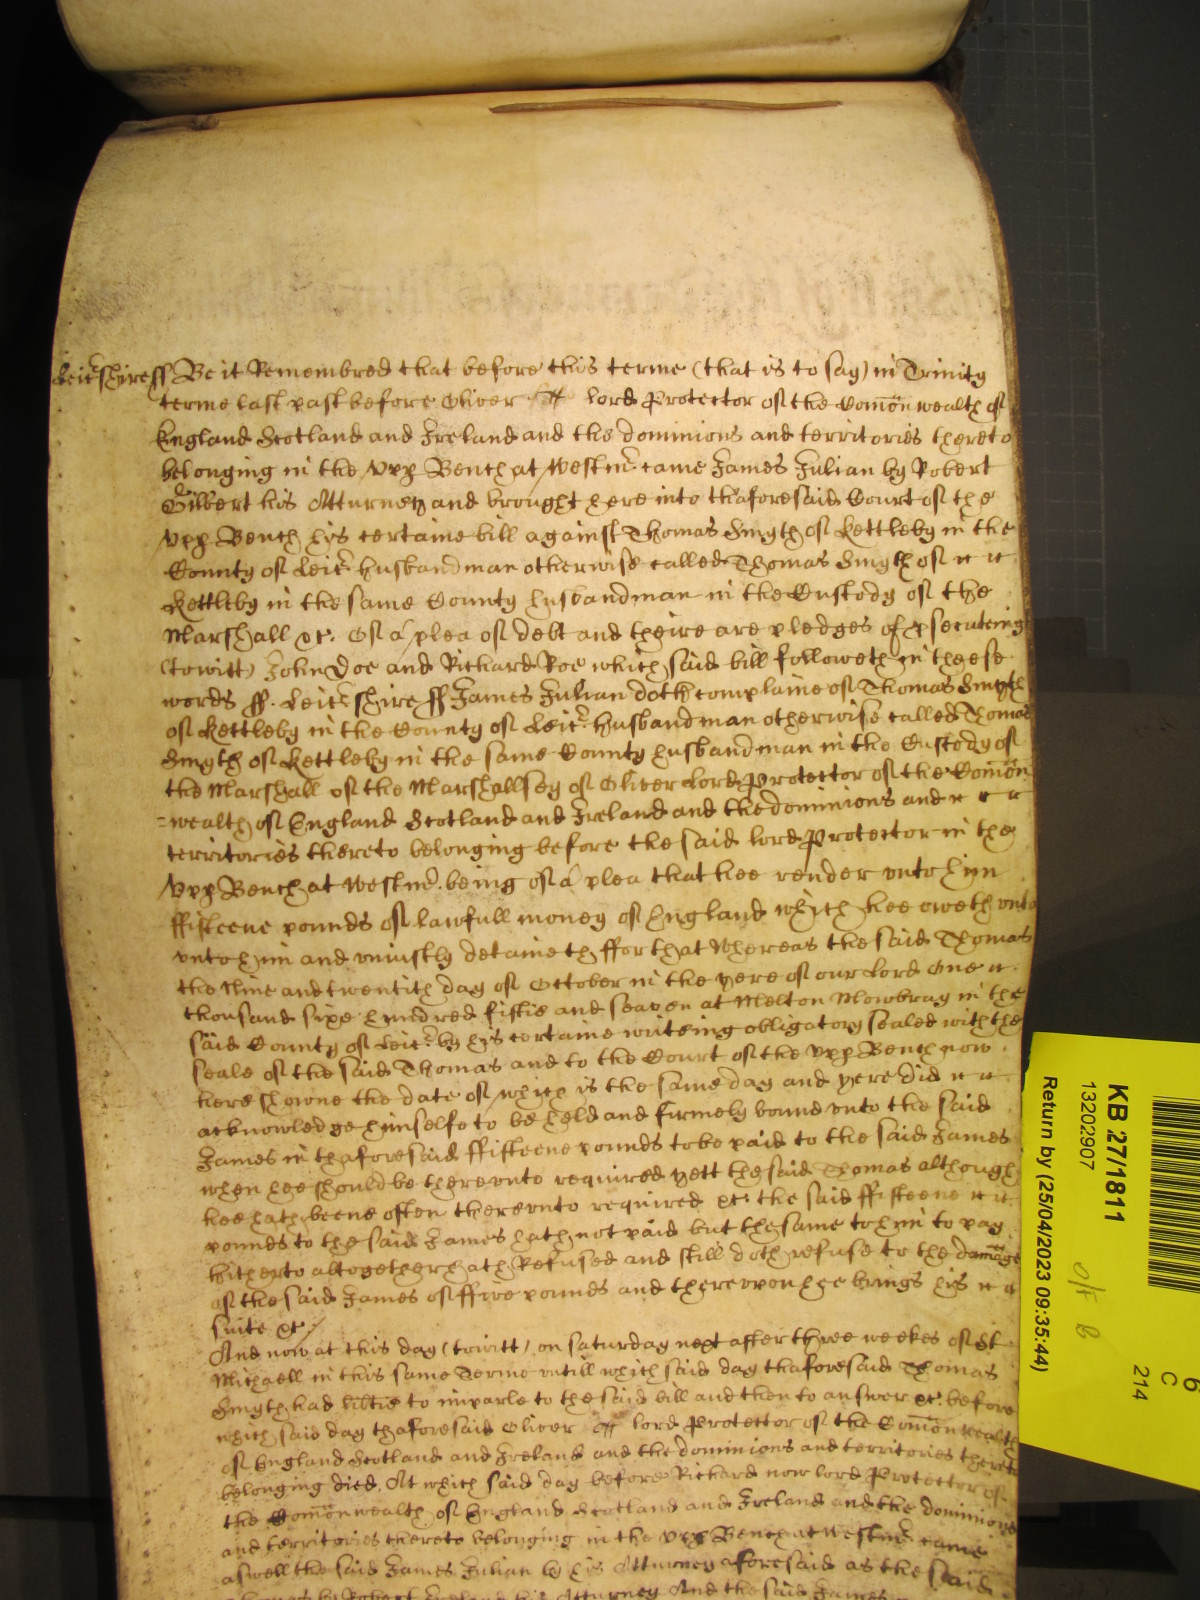 Leicshire ss Be it Remembred that before this terme (that is to say) in Trinity
terme last past before Oliver lord Protector of the Comon wealth of
England Scotland and Ireland and the dominions and territories thereto
belonging in the Upp Bench at Westmr came James Julian by Robert
Gilbert his Atturney and brought here into thaforesaid Court of the
Upp Bench his certaine bill against Thomas Smyth of Kettleby in the
County of Leic husbandman otherwise called Thomas Smyth of
Kettleby in the same County husbandman in the Custody of the
Marshall &c. Of a plea of debt and theire are pledges of psecuteing
(towitt) John Doe and Richard Roe which said bill followeth in these
words ss. Leicshire ss James Julian doth complaine of Thomas Smyth
of Kettleby in the County of Leic husbandman otherwise called Thomas
Smyth of Kettleby in the same County husbandman in the Custody of
the Marshall of the Marshallsey of Oliver Lord Protector of the Comon
=wealth of England Scotland and Ireland and the dominions and
territories thereto belonging before the said lord Protector in the
Upp Bench at Westmr. being of a plea that hee render unto him
ffifteene pounds of lawfull money of England which hee oweth unto
unto him and uniustly detaineth ffor that Whereas the said Thomas
the Nine and twentith day of October in the yere of our Lord One
thousand sixe hundred fiftie and seaven at Melton Mowbray in the
said County of Leic by his certaine writeing obligatory sealed with the
seale of the said Thomas and to the Court of the Upp Bench now
here showne the date of which is the same day and yere did
acknowledge himselfe to be held and firmely bound unto the said
James in thaforesaid ffifteene pounds to be paid to the said James
when hee should be thereunto required yett the said Thomas although
hee hath beene often thereunto required &c. the said ffifteene
pounds to the said James hath not paid but the same to him to pay
hitherto altogether hath Refused and still doth refuse to the damage
of the said James of ffive pounds and thereupon hee brings his
suite &c
And now at this day (towitt) on saturday next after three weekes of St
Michaell in this same Terme untill which said day thaforesaid Thomas
Smyth had libtie to imparle to the said bill and then to answer &c. before
which said day thaforesaid Oliver lord Protector of the Comonwealth
of England Scotland and Ireland and the dominions and territories thereto
belonging died. At which said day before Richard now lord Protector of
the Comonwealth of England Scotland and Ireland and the dominions
and territories thereto belonging in the Upp Bench at Westmr came
aswell the said James Julian by his Atturney aforesaid as the said
by Robert his Atturney And the said James
KB 27/1811
13202907
Return by (25/04/2023 09:35:44)
C
214